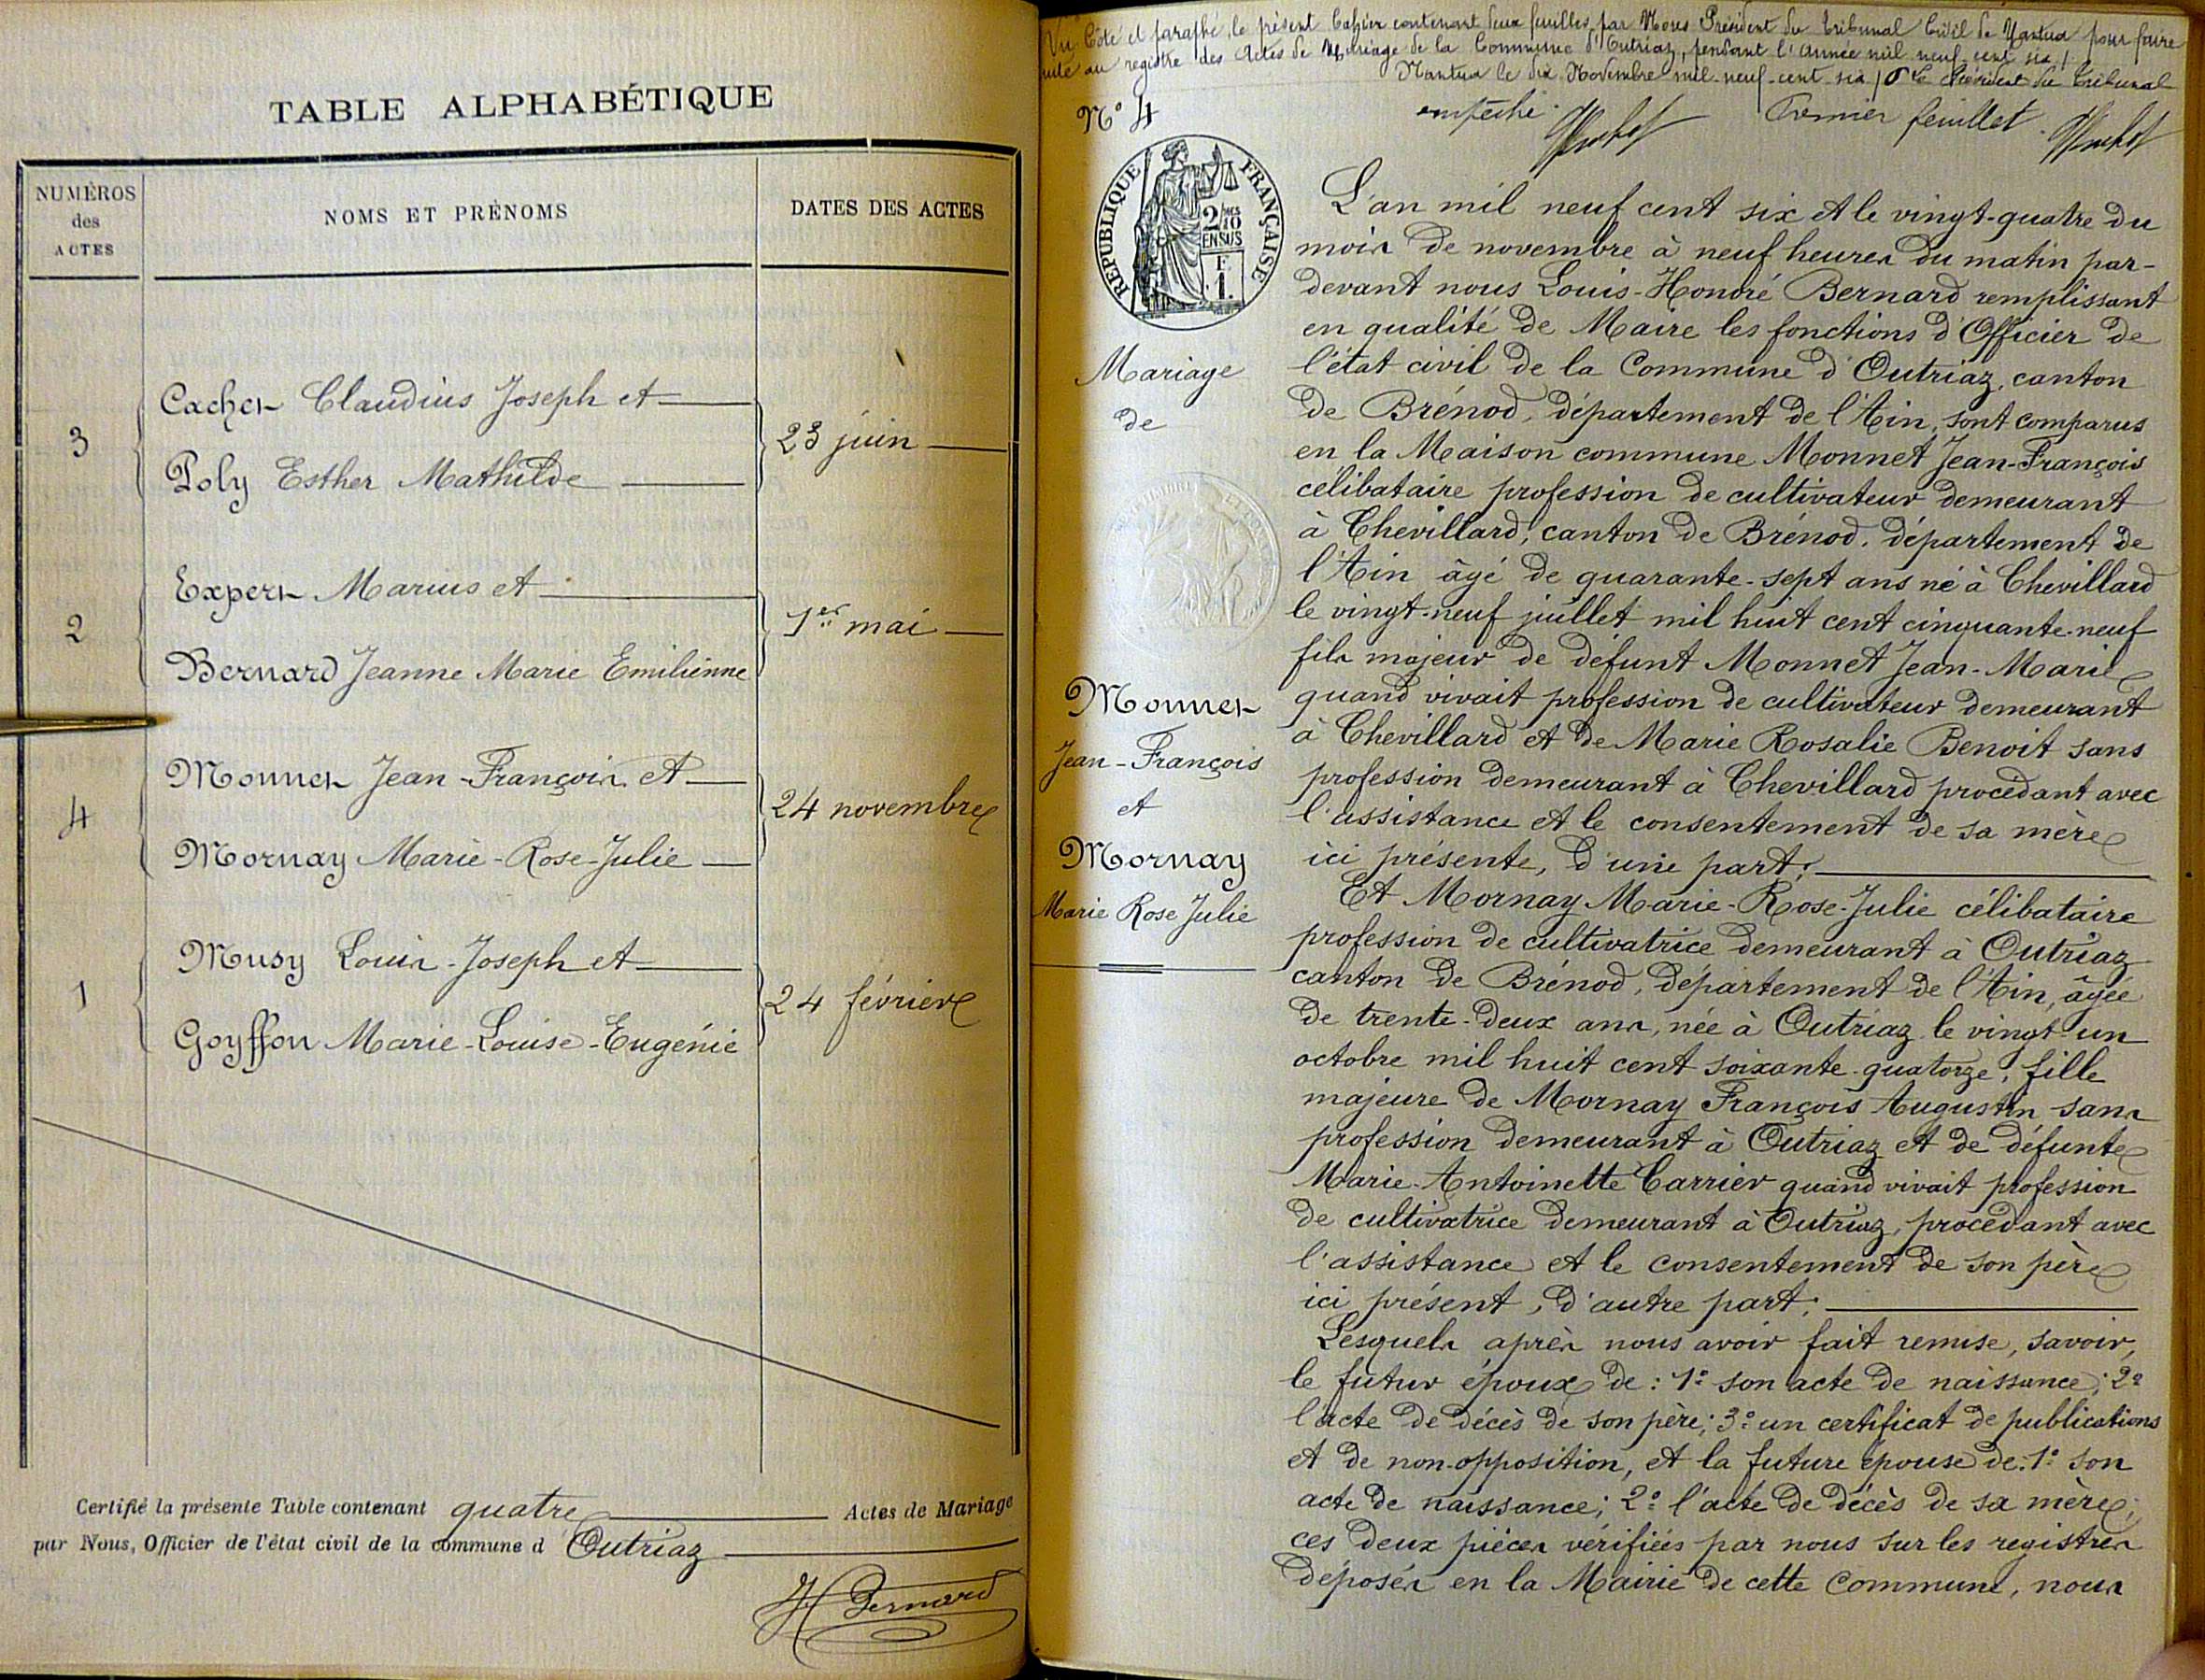 TABLE ALPHABÉTIQUE
NUMÉROS
des
ACTES
NOMS ET PRÉNOMS
DATES DES ACTES
3
Cachet Claudius Joseph et
Poly Esther Mathilde
23 juin
2
Expert Marius et
Bernard Jeanne Marie Emilienne
1er mai
4
Monnet Jean-François et
Mornay Marie-Rose-Julie
24 novembre
1
Musy Louis-Joseph et
Goyffon Marie-Louise-Eugénie
24 février
Certifié la présente Table contenant quatre Actes de Mariage
par Nous, Officier de l'état civil de la commune d'Outriaz
H Bernard
Vu Coté et paraphé, le présent Cahier contenant deux feuilles, par Nous Président du Tribunal Civil de Nantua pour faire
suite au registre des Actes de Mariage de la Commune d'Outriaz, pendant l'année mil neuf cent six
Nantua le dix Novembre mil-neuf-cent-six Le Président du Tribunal
empêché
Premier feuillet
N° 4
RÉPUBLIQUE FRANÇAISE
2/10
EN SUS
F.
1.
Mariage
de
Monnet
Jean-François
et
Mornay
Marie Rose Julie
L'an mil neuf cent six et le vingt-quatre du
mois de novembre à neuf heures du matin par-
devant nous Louis-Honoré Bernard remplissant
en qualité de Maire les fonctions d'Officier de
l'état civil de la Commune d'Outriaz, canton
de Brénod, département de l'Ain, sont comparus
en la Maison commune Monnet Jean-François
célibataire profession de cultivateur demeurant
à Chevillard, canton de Brénod, département de
l'Ain âgé de quarante-sept ans né à Chevillard
le vingt-neuf juillet mil huit cent cinquante-neuf
fils majeur de défunt Monnet Jean-Marie
quand vivait profession de cultivateur demeurant
à Chevillard et de Marie Rosalie Benoit sans
profession demeurant à Chevillard procédant avec
l'assistance et le consentement de sa mère
ici présente, d'une part;
Et Mornay Marie-Rose-Julie célibataire
profession de cultivatrice demeurant à Outriaz
canton de Brénod, département de l'Ain, âgée
de trente-deux ans, née à Outriaz le vingt-un
octobre mil huit cent soixante-quatorze, fille
majeure de Mornay François Augustin sans
profession demeurant à Outriaz et de défunte
Marie-Antoinette Carrier quand vivait profession
de cultivatrice demeurant à Outriaz, procédant avec
l'assistance et le consentement de son père
ici présent, d'autre part;
Lesquels après nous avoir fait remise, savoir,
le futur époux de: 1° son acte de naissance; 2°
l'acte de décès de son père; 3° un certificat de publications
et de non-opposition, et la future épouse de: 1° son
acte de naissance; 2° l'acte de décès de sa mère,
ces deux pièces vérifiées par nous sur les registres
déposés en la Mairie de cette Commune, nous